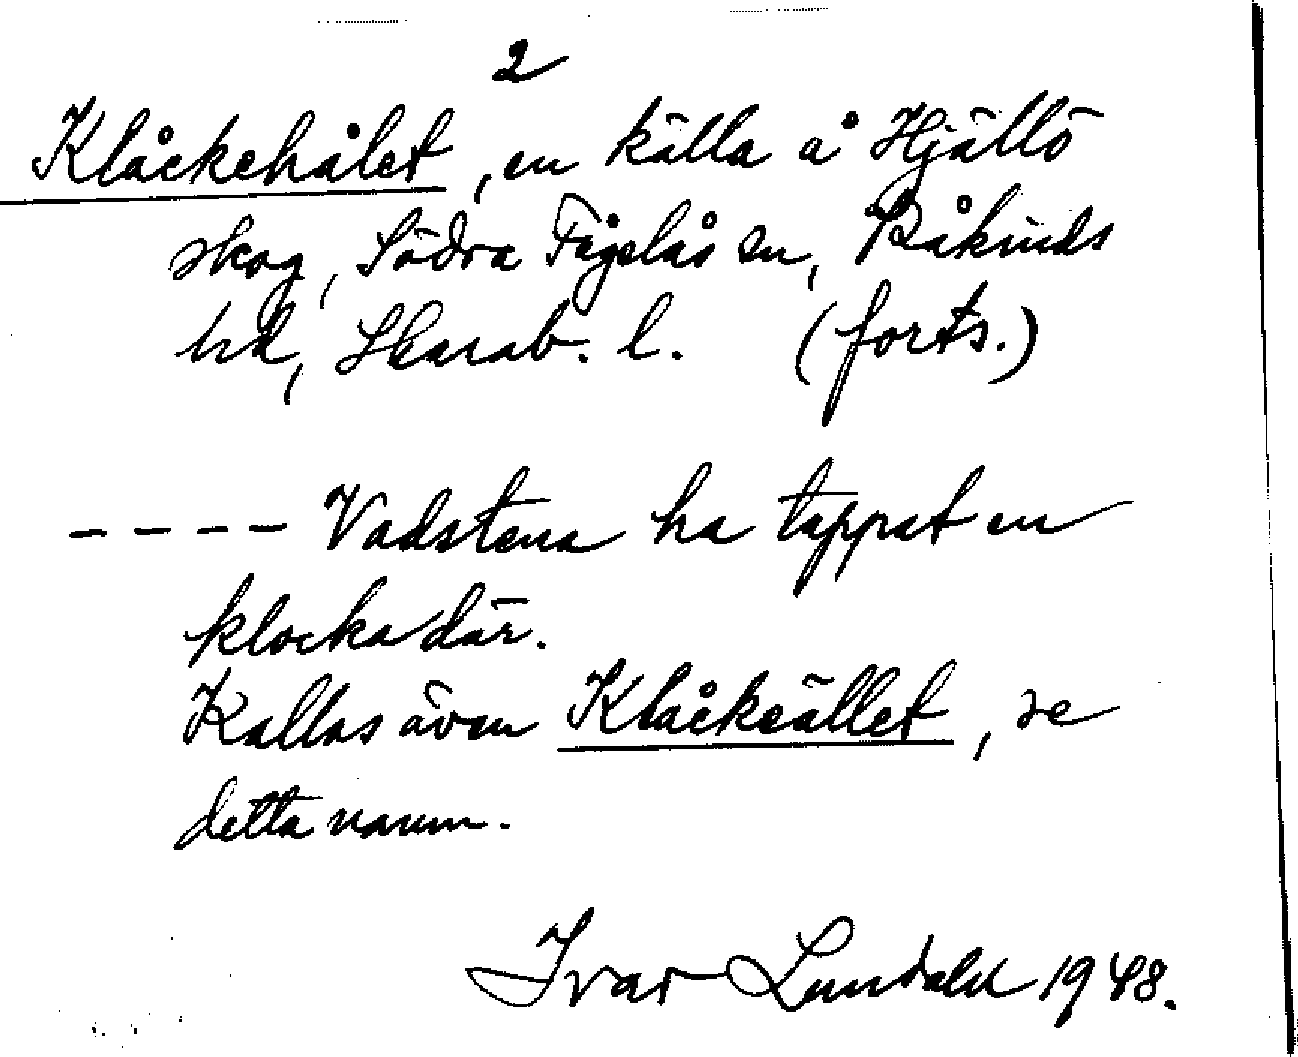 2
Klåckehålet, en källa å Hjällö
skog, Södra Fågelås sn, Kåkinds
hd, Skarab. l. (forts.)
---- Vadstena ha tappat en
klocka där.
Kallas även Klåckeället, se
detta namn.
Ivar Lundahl 1948.